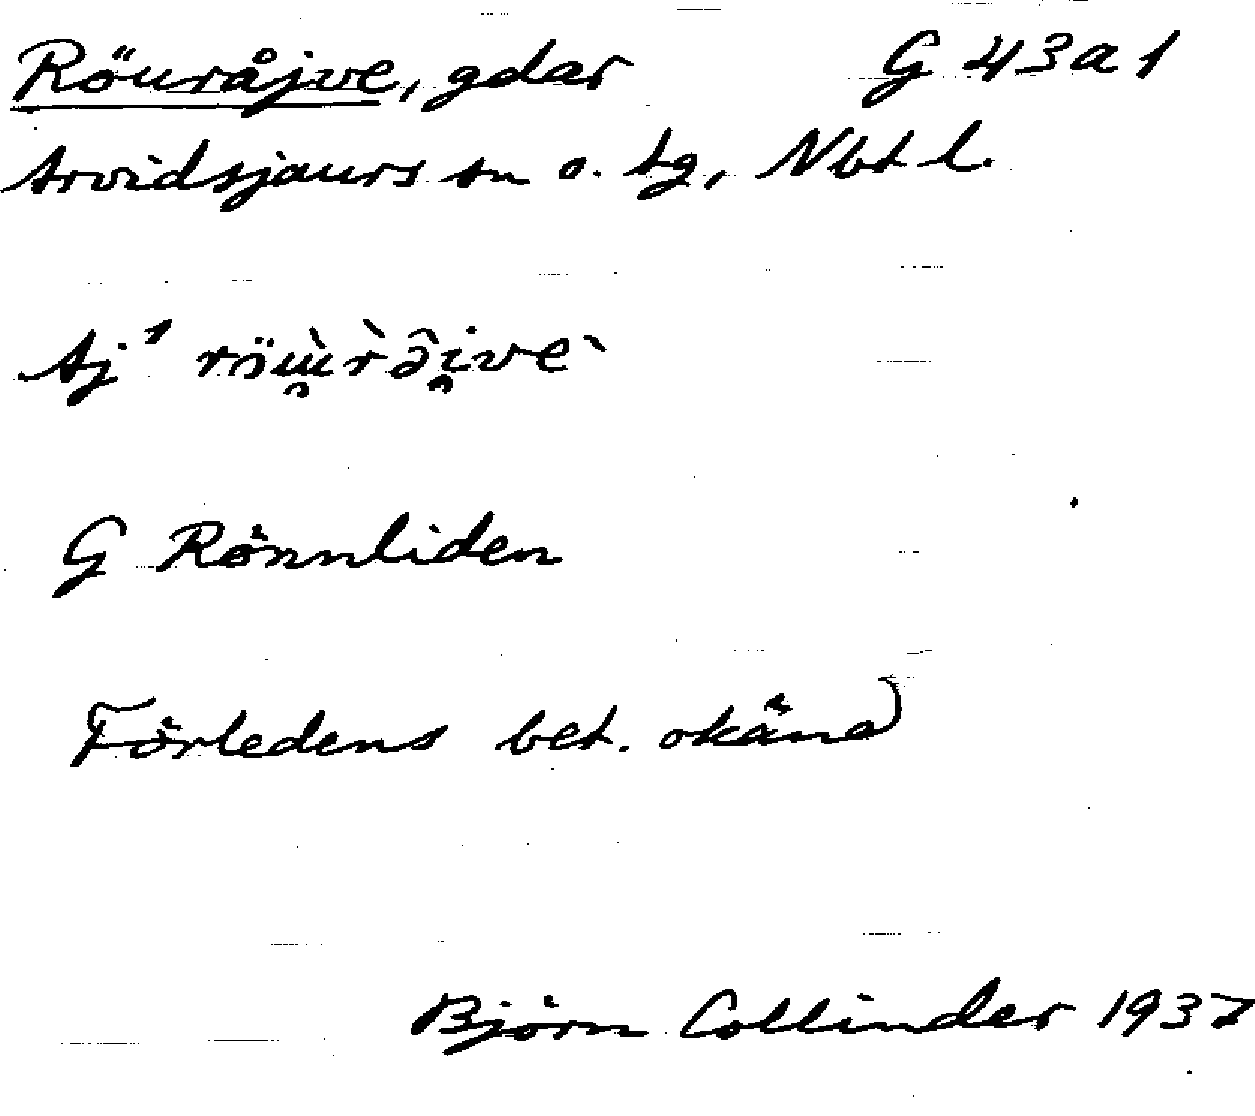 Röuråjve, gdar G 43 a 1
Arvidsjaurs sn o. tg, Nbt l.
Aj¹ röù̯r̀å̂i̯ve`
G Rönnliden
Förledens bet. okänd
Björn Collinder 1937